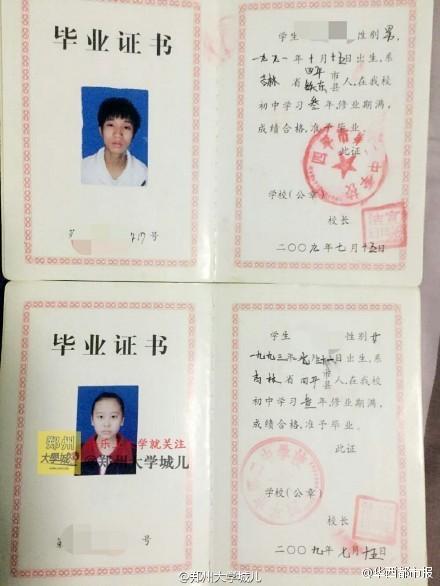 毕业证书
第 号
学生 性别 男,
一九九一年十月十五日出生,系
吉林省四平市 县人,在我校
初中学习叁年,修业期满,
成绩合格,准予毕业。
此证
学校(公章)
校长
二〇〇九年七月十五日
毕业证书
第 号
学生 性别 女
一九九三年 日出生,系
吉林省四平市县人,在我校
初中学习叁年,修业期满,
成绩合格,准予毕业。
此证
学校(公章)
校长
二〇〇九年七月十五日
郑州
大学城
乐 学就关注
@郑州大学城儿
@郑州大学城儿
@华西都市报